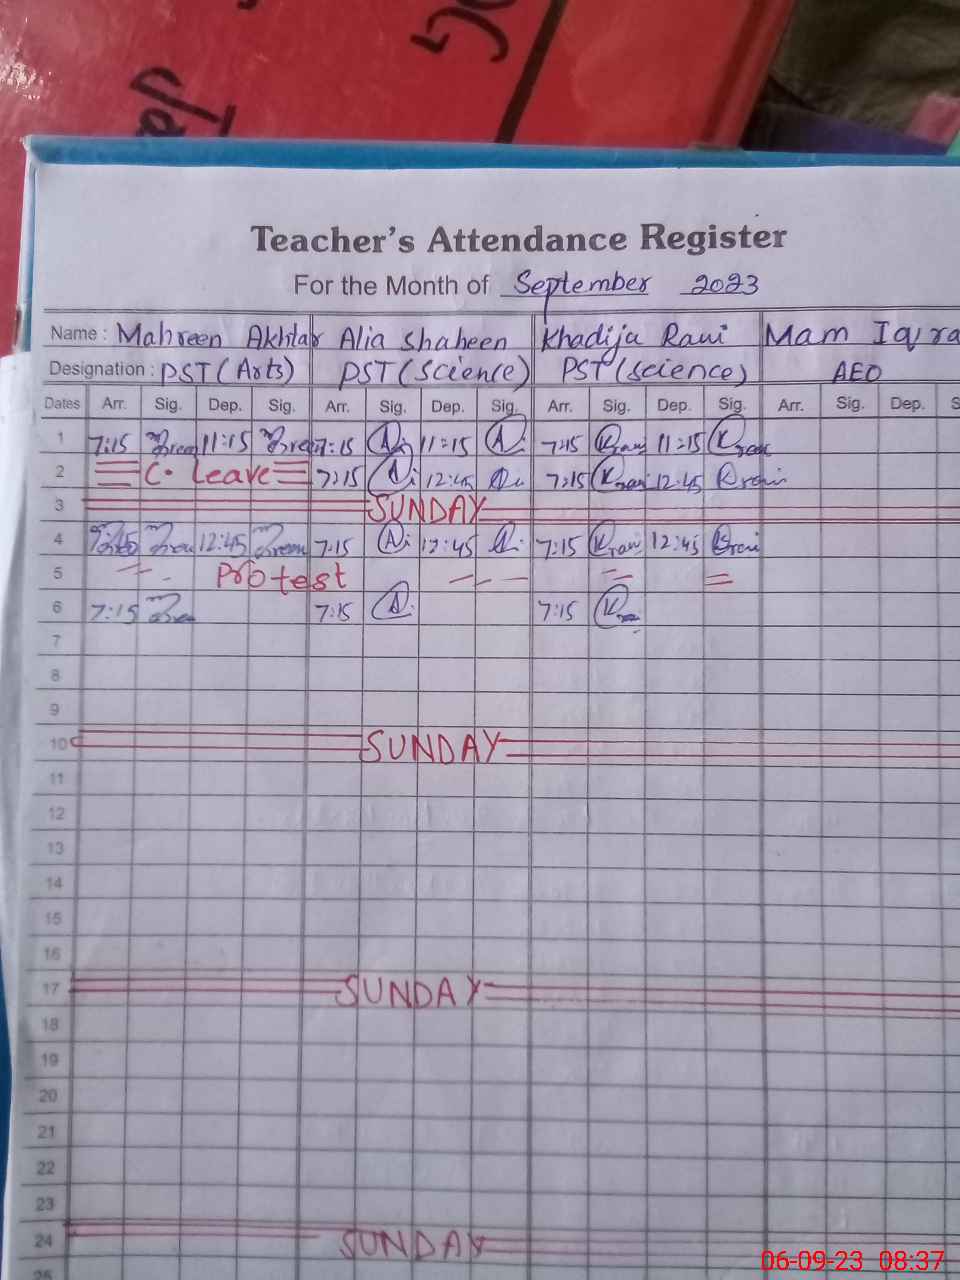 Teacher's Attendance Register
For the Month of September 2023
Name : Mahreen Akhtar Alia Shaheen Khadija Rani Mam Iqra
Designation : PST (Arts) PST (Science) PST (science) AEO
Dates Arr. Sig. Dep. Sig. Arr. Sig. Dep. Sig. Arr. Sig. Dep. Sig. Arr. Sig. Dep. S
1 7:15 11:15 7:15 11-15 7:15 11:15
2 C. Leave 7:15 12:45 7:15 12:45
3 SUNDAY
4 12:45 7:15 12:45 7:15 12:45
5 Protest
6 7:15 7:15 7:15
7
8
9
10 SUNDAY
11
12
13
14
15
16
17 SUNDAY
18
19
20
21
22
23
24 SUNDAY
25
06-09-23 08:37